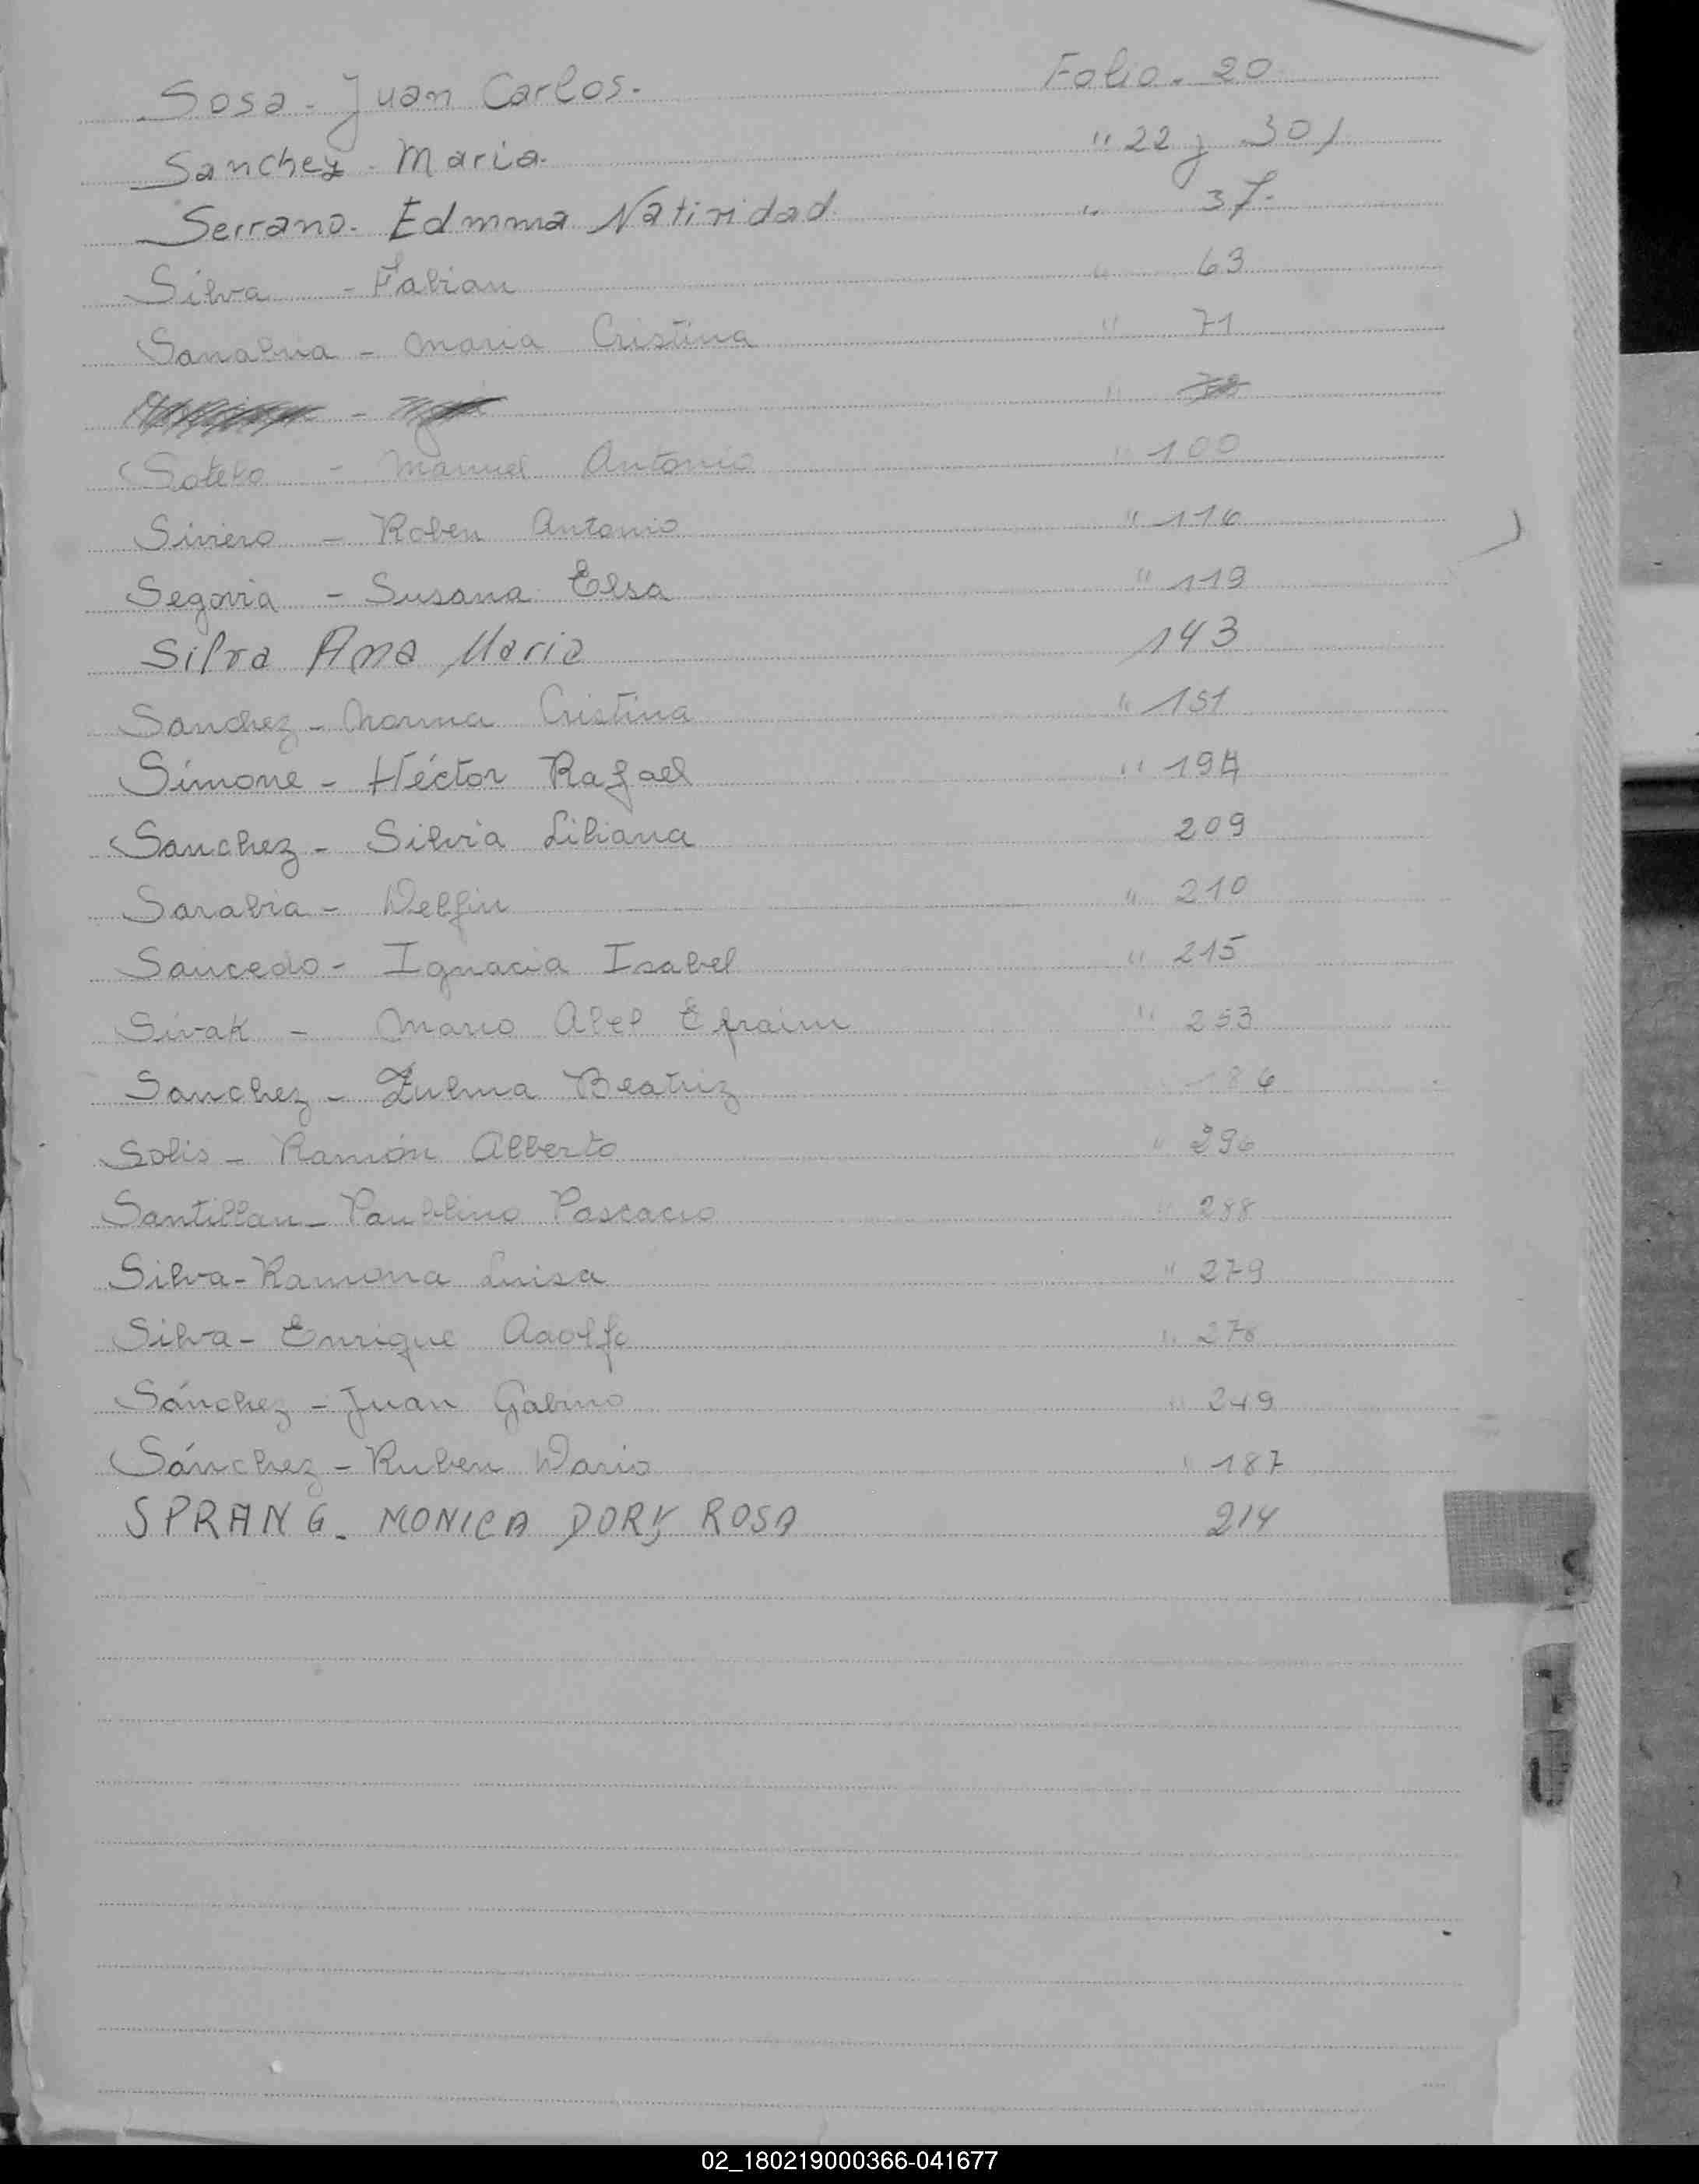 Sosa - Juan Carlos. Folio. 20
Sanchez - Maria. " 22 y 301
Serrano. Edmma Natividad " 37-
Silva - Fabian " 63
Sanabria - Maria Cristina " 71
"
Sotelo - Manuel Antonio " 100
Roben Antonio " 116
Segovia - Susana Elsa " 119
Silva Ana Maria 143
Sanchez - Norma Cristina " 151
Simone - Héctor Rafael " 194
Sanchez - Silvia Liliana 209
Sarabia - Delfin " 210
Saucedo - Ignacia Isabel " 215
Sivak - Mario Abel Efraim " 253
Sanchez - Zulma Beatriz 186
Solis - Ramón Alberto " 296
Santillan - Pascacio " 288
Silva - Ramona Luisa " 279
Silva - Enrique Adolfo " 278
Sánchez - Juan Gabino " 249
Sánchez - Ruben Dario " 187
SPRANG. MONICA DORY ROSA 214
02_180219000366-041677